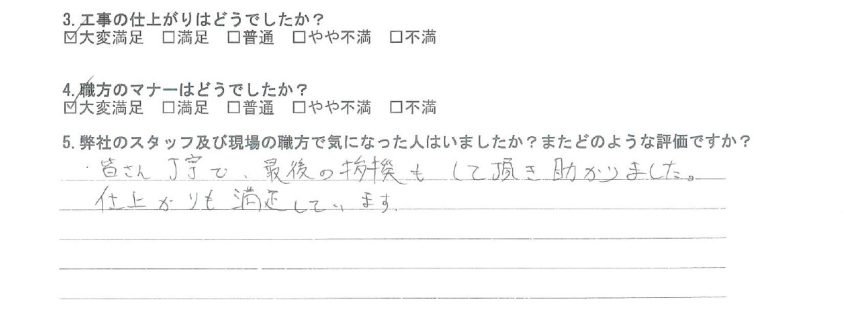 3. 工事の仕上がりはどうでしたか？
☑大変満足 □満足 □普通 □やや不満 □不満
4. 職方のマナーはどうでしたか？
☑大変満足 □満足 □普通 □やや不満 □不満
5. 弊社のスタッフ及び現場の職方で気になった人はいましたか？またどのような評価ですか？
・皆さん丁寧で、最後の挨拶もして頂き助かりました。
仕上がりも満足しています。